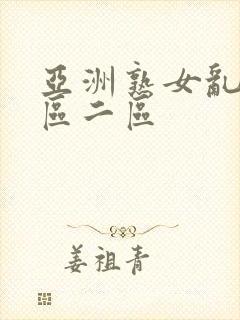 亞洲熟女亂
區二區
姜祖青